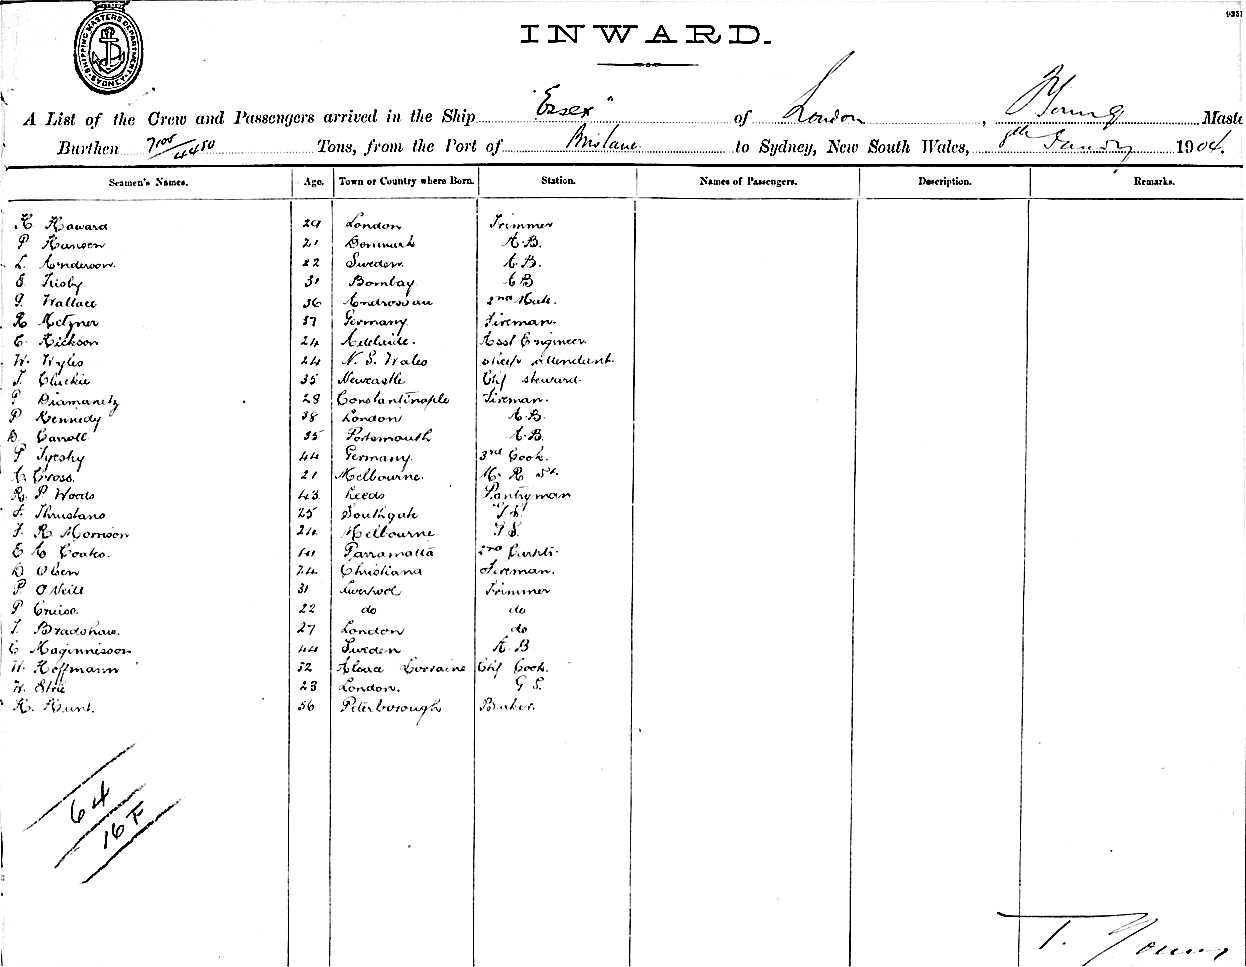 SHIPPING MASTERS DEPARTMENT SYDNEY
INWARD.
A List of the Crew and Passengers arrived in the Ship "Essex" of London, Young Maste
Burthen 7100/4450 Tons, from the Port of Brisbane to Sydney, New South Wales, 8th 1904.
Seamen's Names. Age. Town or Country where Born. Station. Names of Passengers. Description. Remarks.
H Haward 29 London Trimmer
P Hansen 21 Denmark A.B.
L. Anderson. 22 Sweden. A B.
31 Bombay A B
Wallace 36 2nd Mate.
R Metzner 37 Germany. Fireman.
C. Hickson 24 Adelaide. Asst Engineer
W. Wyles 24 N. S. Wales attendant
J. Cluckie 35 Newcastle Chf steward.
P 28 Constantinople Fireman.
P Kennedy 38 London A.B.
D Carroll 35 Portsmouth A.B.
P 44 Germany. 3rd Cook.
A. Cross. 21 Melbourne.
R. P Woods 43 Leeds Pantryman
F. Thrustans 25 Southgate
J. R Morrison 24 Melbourne
E A Coates. Parramatta 2nd
O Olsen 24 Christiana Fireman.
P O'Neill 31 Liverpool Trimmer
P Cruise. 22 do do
T. Bradshaw. 27 London do
C Maginnisson 44 Sweden A B
W. Hoffmann 52 Alsace Lorraine Chf Cook.
W. 23 London. G S.
H. Hunt. 56 Peterborough Baker.
64
16 F
T. Young